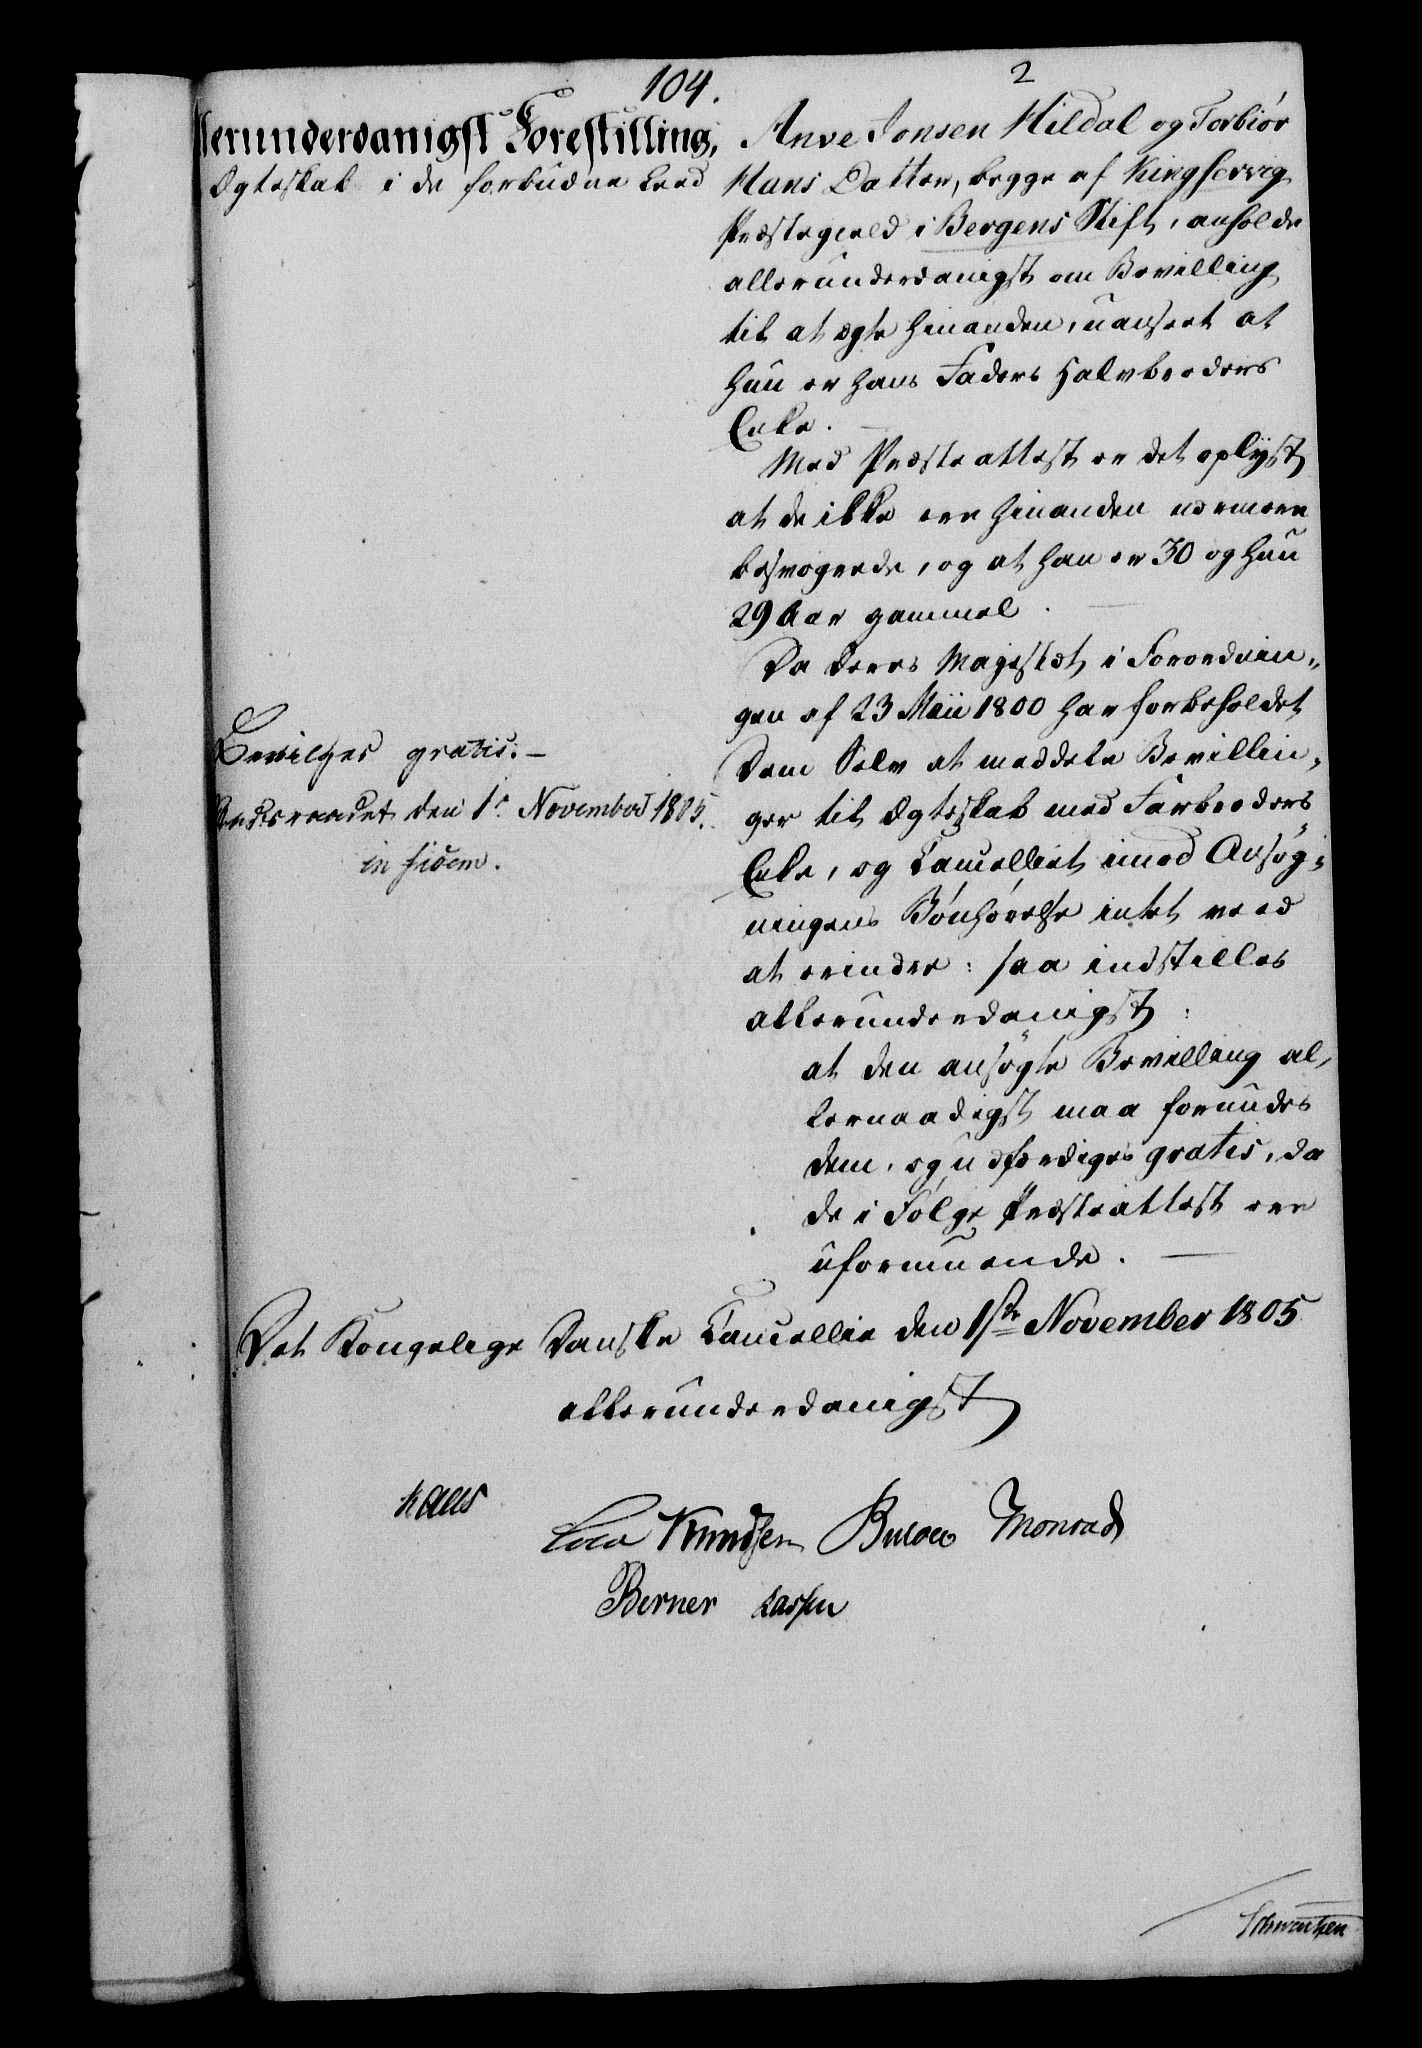 104.
2
llerunderdanigst Forestilling,
Ægteskab i de forbudne Leed
Anve Jonsen Hildal og Torbiör
Hans Datter, begge af Kingservig
Præstegield i Bergens Stift, anholde
allerunderdanigst om Bevilling
til at ægte hinanden, uanseet at
hun er hans Faders Halvbroders
Enke.
Med Præsteattest er det oplyst
at de ikke ere hinanden nærmere
besvogrede, og at han er 30 og hun
29 Aar gammel.
Da Deres Majestæt i Forordnin„
gen af 23 Maii 1800 har forbeholdet
Dem Selv at meddele Bevillin„
ger til Ægteskab med Farbroders
Enke, og Cancelliet imod Ansøg„
ningens Bönhörelse intet veed
at erindre: saa indstilles
allerunderdanigst:
at den ansøgte Bevilling al„
lernaadigst maa forundes
dem, og udfærdiges gratis, da
de i Fölge Præsteattest ere
uformuende.
Bevilges gratis. –
Statsraadet den 1. November 1805.
in fidem.
Det Kongelige Danske Cancellie den 1ste November 1805
allerunderdanigst
Kaas
Cold Knudsen Bülow Monrad
Berner Lassen